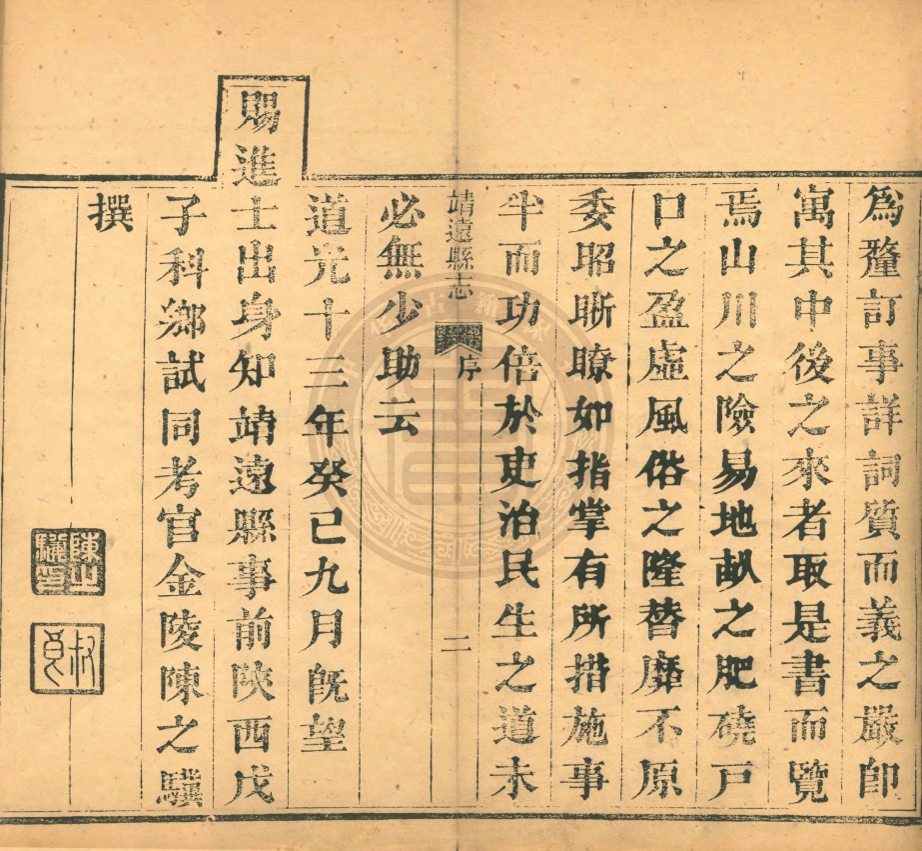 為釐訂事詳詞質而義之嚴卽
寓其中後之來者取是書而覽
焉山川之險易地畝之肥磽戸
口之盈虛風俗之隆替靡不原
委昭晰瞭如指掌有所措施事
半而功倍於吏治民生之道未
靖遠縣志 序 二
必無少助云
道光十三年癸巳九月旣望
賜進士出身知靖遠縣事前陝西戊
子科鄉試同考官金陵陳之驥
撰
陳之驥印